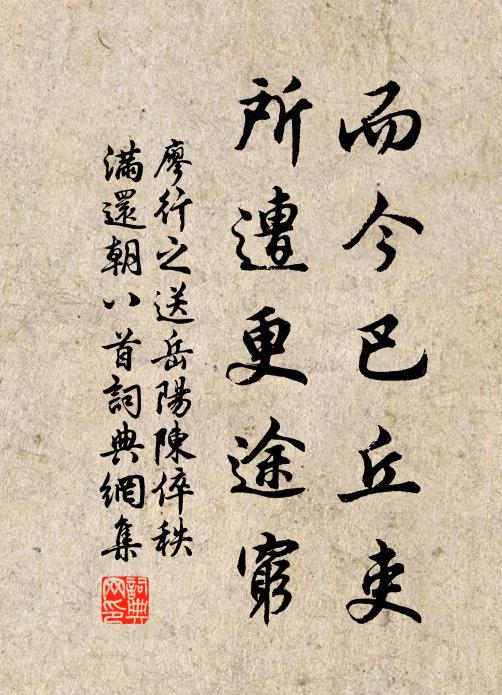 而今巴丘吏
所遭更途窮
廖行之送岳陽陳倅秩
滿還朝八首詞典網集
詞典
网印